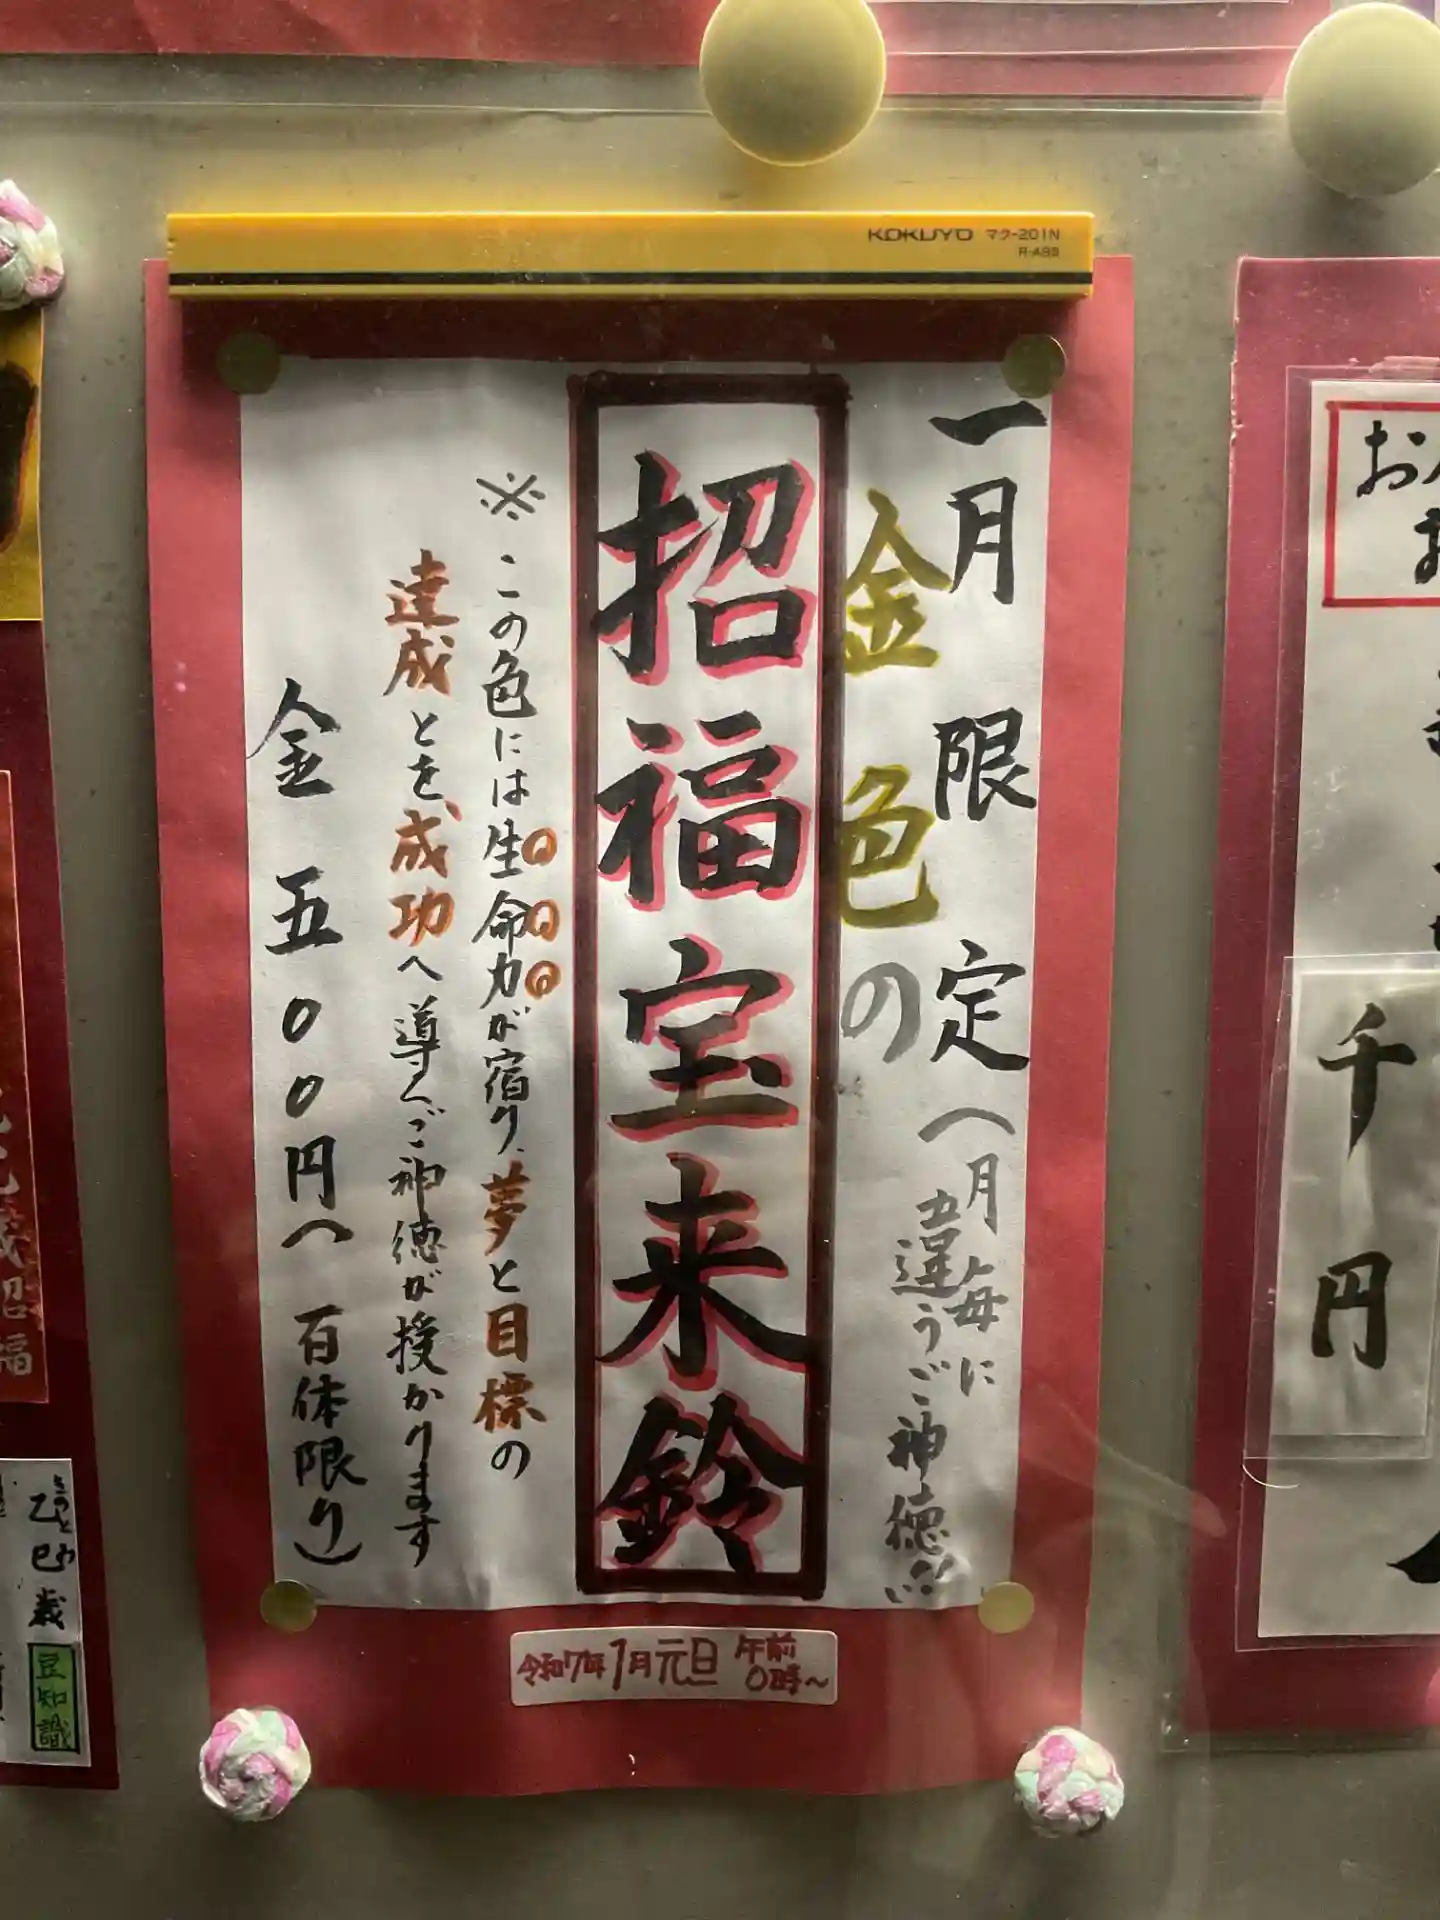 KOKUYO マク-201N
R-A99
一月限定(月毎に
違うご神徳!!!
金色の
招福宝来鈴
※この色には生命力が宿り、夢と目標の
達成とを成功へ導くご神徳が授かります
金五00円(百体限り)
令和7年1月元旦 午前
0時～
千円
乙巳歳
豆知識